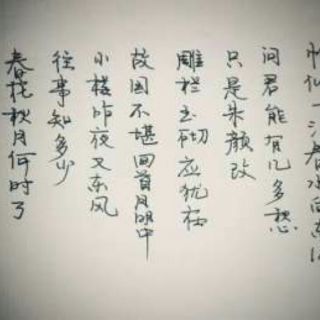 春花秋月何时了
往事知多少
小楼昨夜又东风
故国不堪回首月明中
雕栏玉砌应犹在
只是朱颜改
问君能有几多愁
恰似一江春水向东